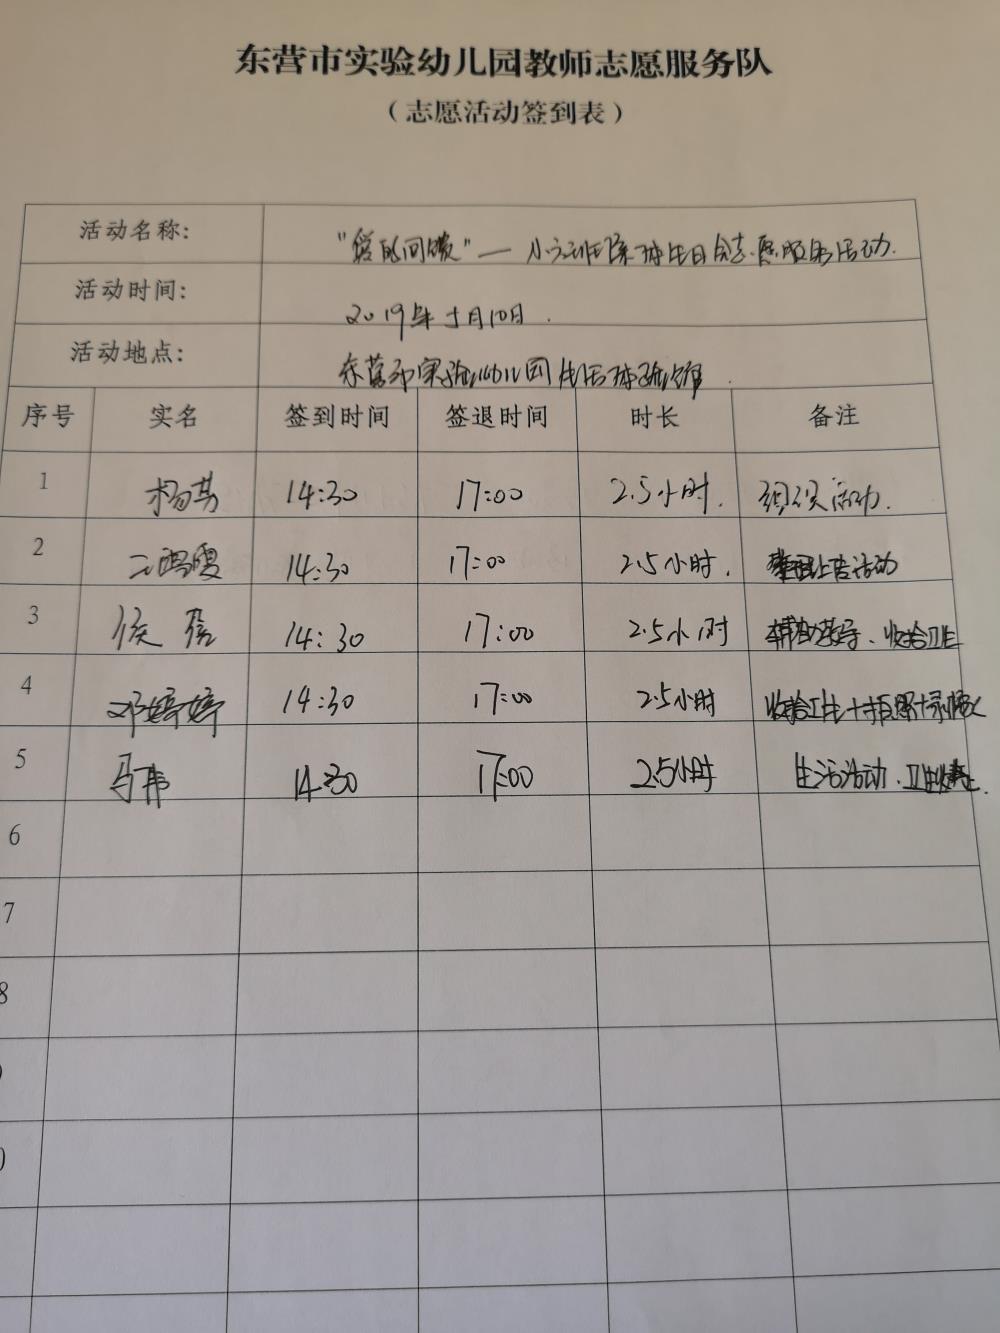 东营市实验幼儿园教师志愿服务队
（志愿活动签到表）
活动名称: "爱的回馈"— 小六班 生日会志愿服务活动.
活动时间: 2019年 月10日.
活动地点: 东营市实验幼儿园生活体验馆.
序号 实名 签到时间 签退时间 时长 备注
1 杨 14:30 17:00 2.5小时. 组织活动.
2 14:30 17:00 2.5小时. 活动
3 侯 14:30 17:00 2.5小时 辅助教学、收拾卫生
4 邓婷婷 14:30 17:00 2.5小时 收拾卫生+拍照+录像
5 马伟 14:30 17:00 2.5小时 生活活动、卫生
6
7
8